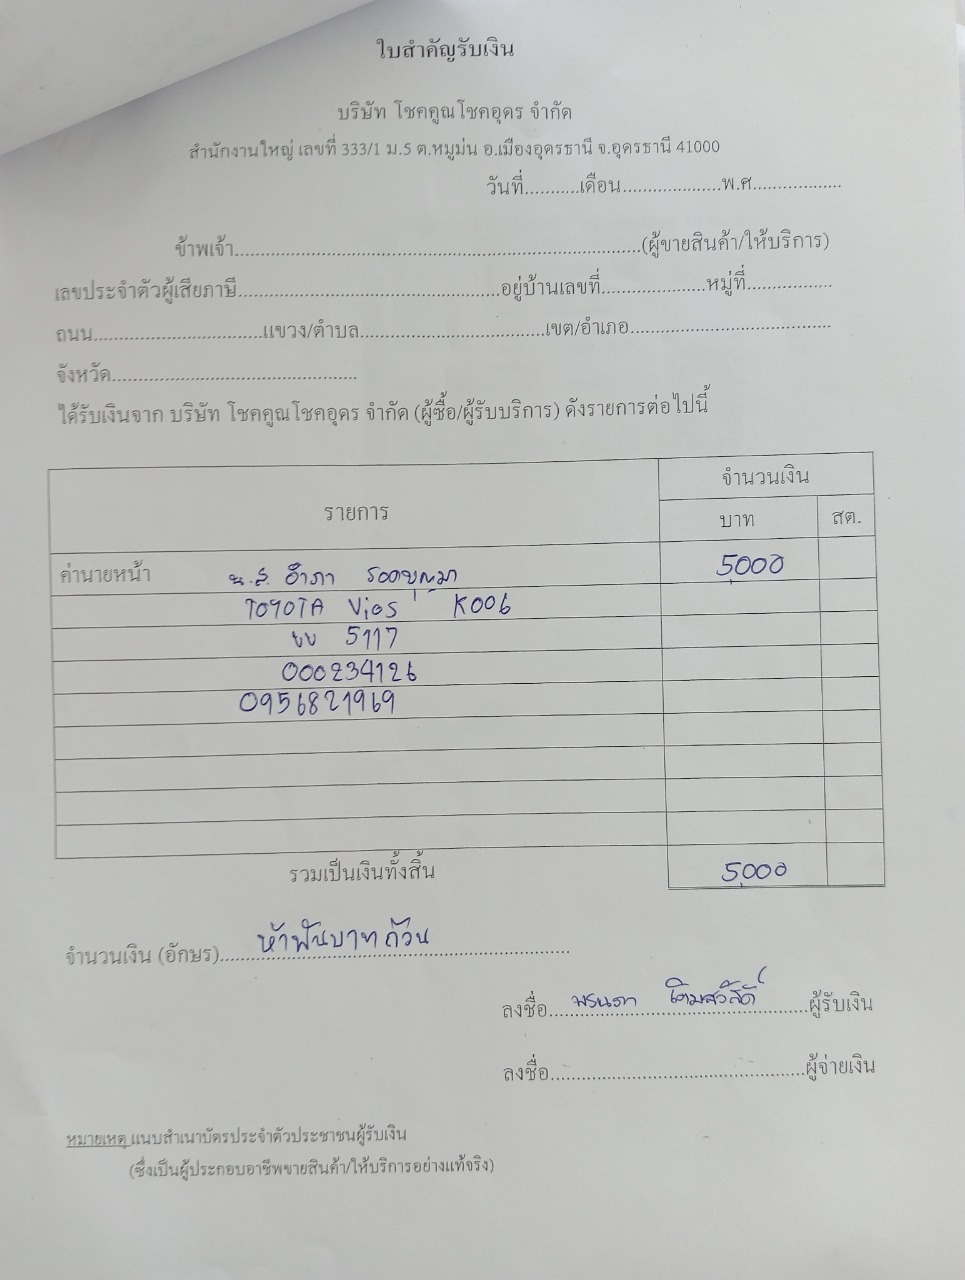 ใบสำคัญรับเงิน
บริษัท โชคคูณโชคอุดร จำกัด
สำนักงานใหญ่ เลขที่ 333/1 ม.5 ต.หมูม่น อ.เมืองอุดรธานี จ.อุดรธานี 41000
วันที่...........เดือน...................พ.ศ.................
ข้าพเจ้า..............................................................................(ผู้ขายสินค้า/ให้บริการ)
เลขประจำตัวผู้เสียภาษี..................................................อยู่บ้านเลขที่....................หมู่ที่................
ถนน................................แขวง/ตำบล....................................เขต/อำเภอ.......................................
จังหวัด...............................................
ได้รับเงินจาก บริษัท โชคคูณโชคอุดร จำกัด (ผู้ซื้อ/ผู้รับบริการ) ดังรายการต่อไปนี้
รายการ จำนวนเงิน
บาท สต.
ค่านายหน้า น.ส. อำภา 5,000
TOYOTA Vios K006
ขบ 5117
000234126
0956821969
รวมเป็นเงินทั้งสิ้น 5,000
จำนวนเงิน (อักษร) ห้าพันบาทถ้วน
ลงชื่อ..................ผู้รับเงิน
ลงชื่อ................................................ผู้จ่ายเงิน
หมายเหตุ แนบสำเนาบัตรประจำตัวประชาชนผู้รับเงิน
(ซึ่งเป็นผู้ประกอบอาชีพขายสินค้า/ให้บริการอย่างแท้จริง)